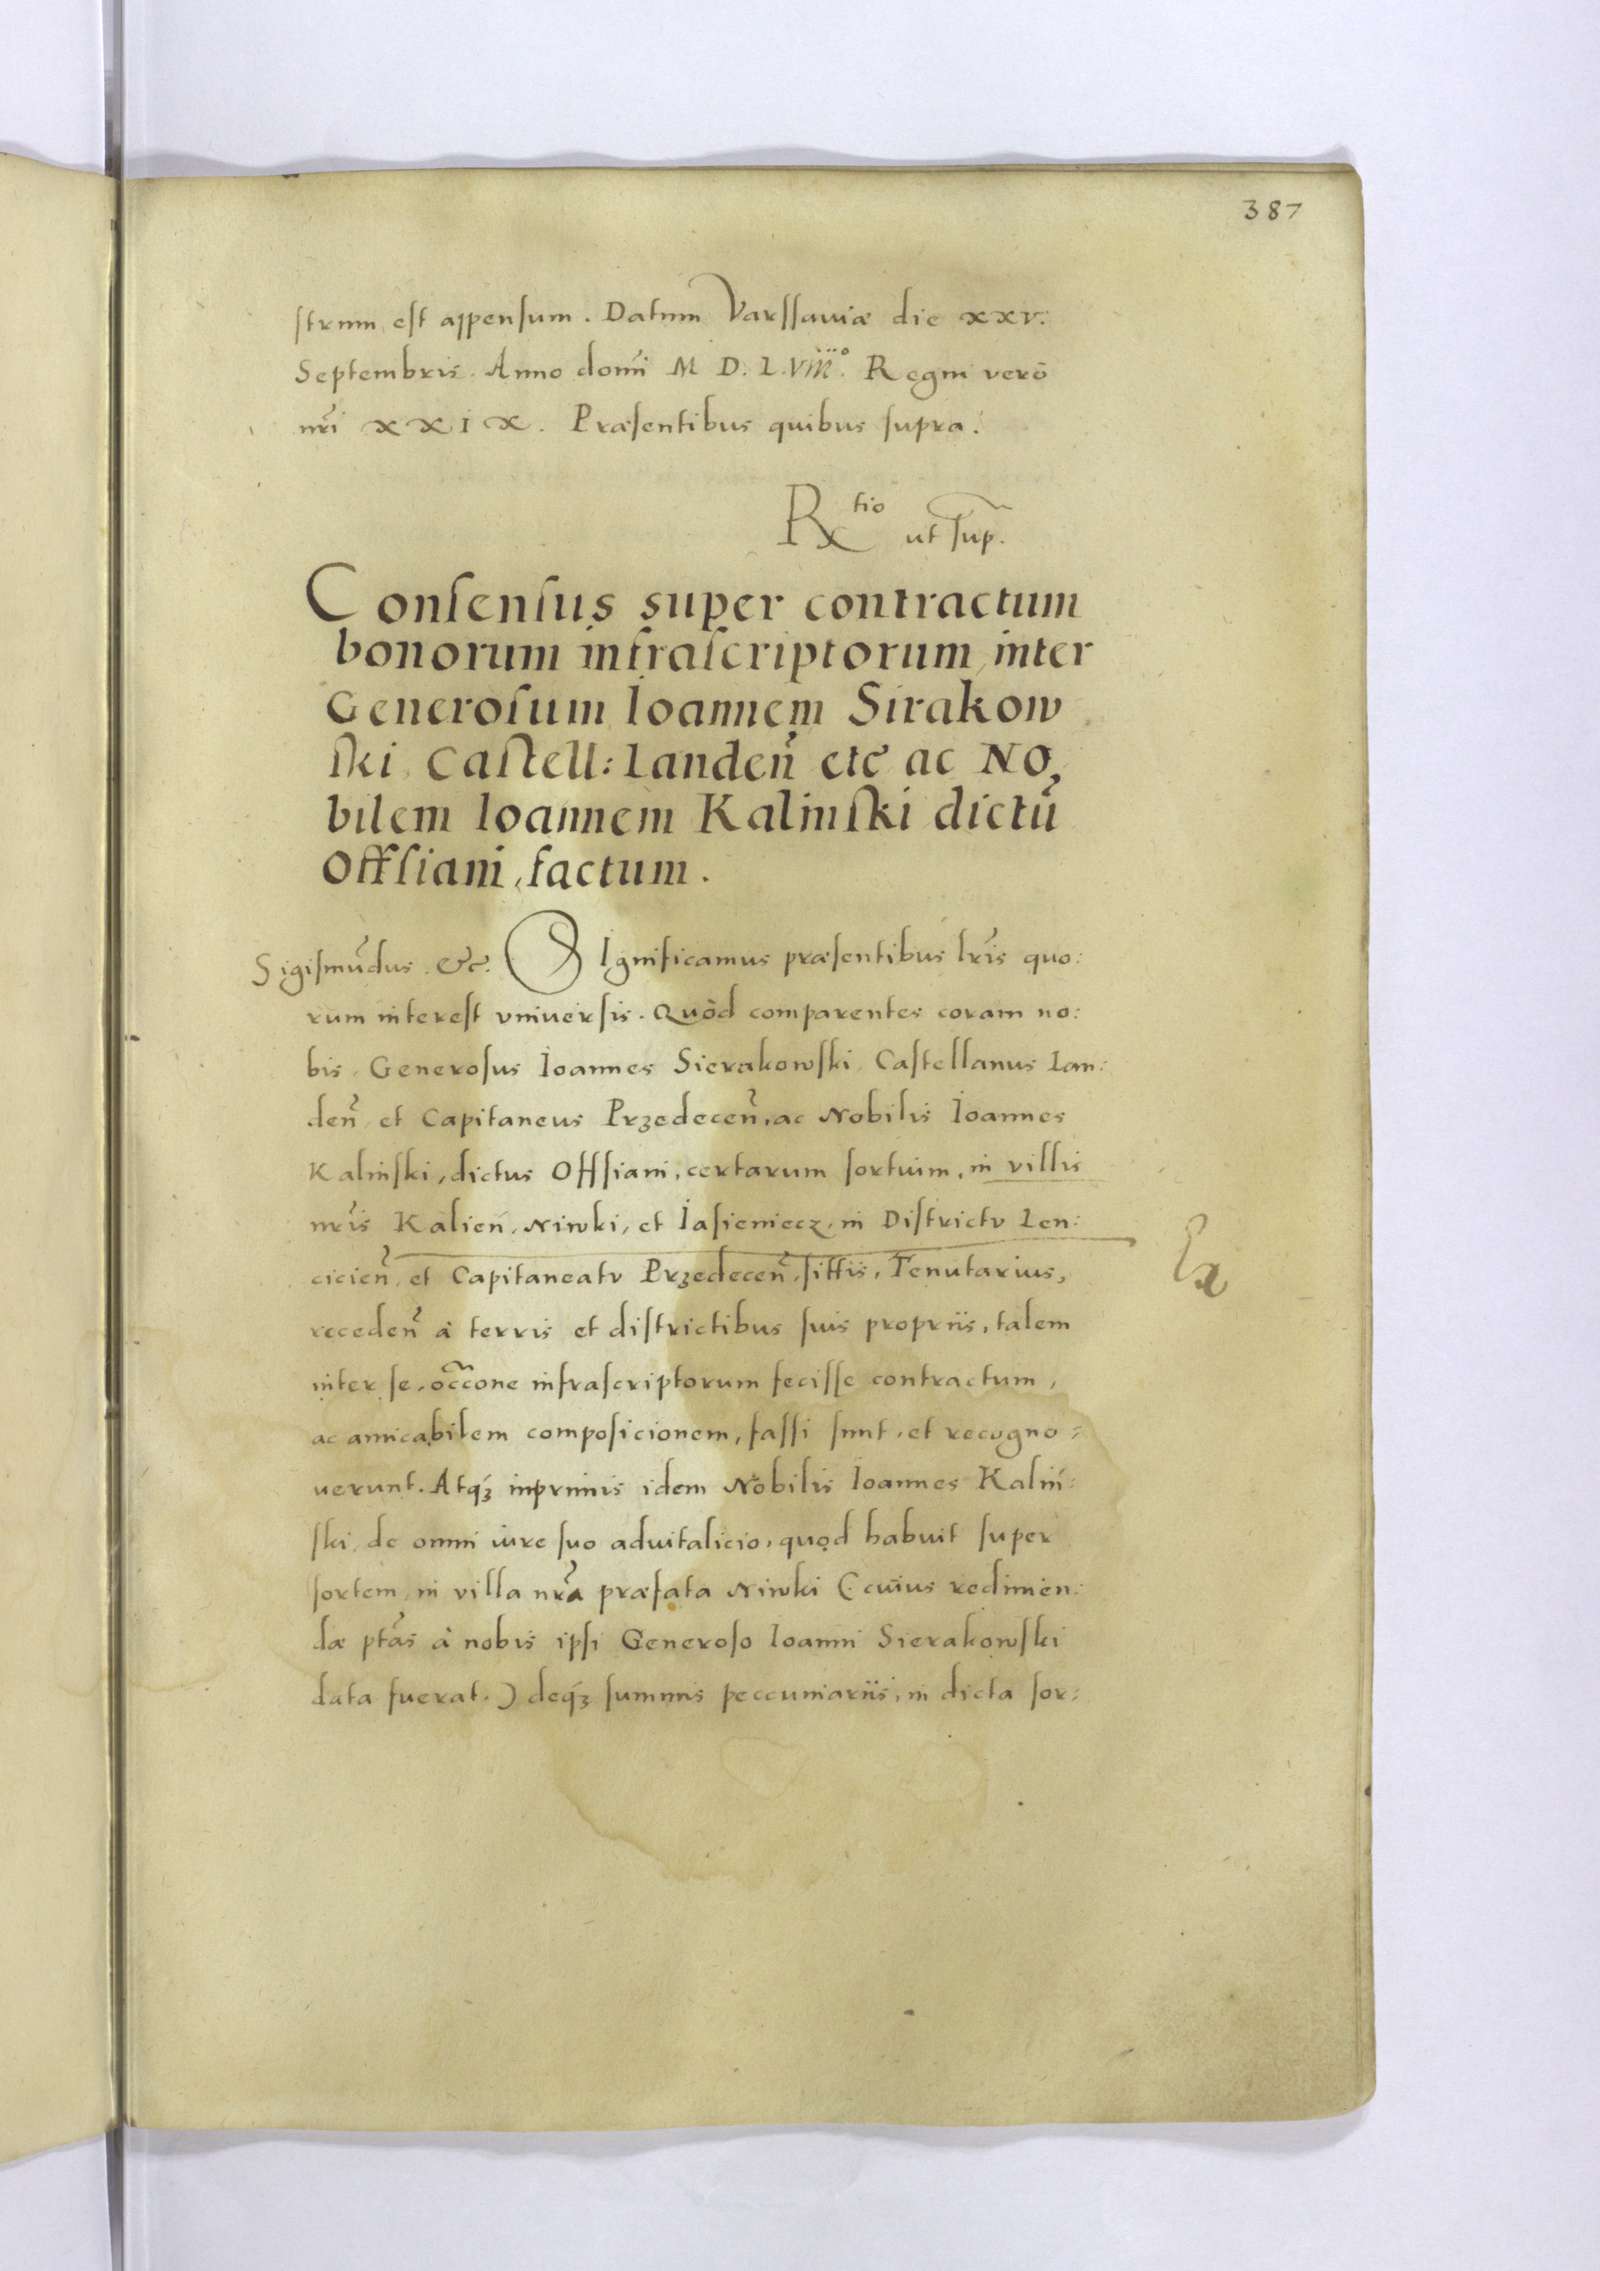 387
strum est appensum. Datum Varssauiæ die xxv:
Septembris. Anno domi M D. L. VIII°. Regni verò
nri xxIx. Præsentibus quibus supra.
Rtio ut sup.
Consensus super contractum
bonorum infrascriptorum, inter
Generosum Ioannem Sirakow
ski, Castell: Landen etc ac No,
bilem Ioannem Kalinski dictũ
Offsiani, factum.
Sigismũdus &c. SIgnificamus præsentibus lris quo:
rum interest vniuersis. Quòd comparentes coram no:
bis, Generosus Ioannes Sierakowski, Castellanus Lan:
den, et Capitaneus Przedecen, ac Nobilis Ioannes
Kalinski, dictus Offsiani, certarum sortium, in villis
nris Kalień, Niwki, et Iasieniecz, in Districtu Len:
cicien, et Capitaneatu Przedecen, sittis, Tenutarius,
receden à terris et districtibus suis propriis, talem
inter se, occone infrascriptorum fecisse contractum,
ac amicabilem composicionem, fassi sunt, et recogno:
uerunt. Atqȝ inprimis idem Nobilis Ioannes Kaliń:
ski, de omni iure suo aduitalicio, quod habuit super
sortem, in villa nra præfata Niwki (cuius redimen:
dæ ptas à nobis ipsi Generoso Ioanni Sierakowski
data fuerat.) deqȝ summis peccuniariis, in dicta sor: